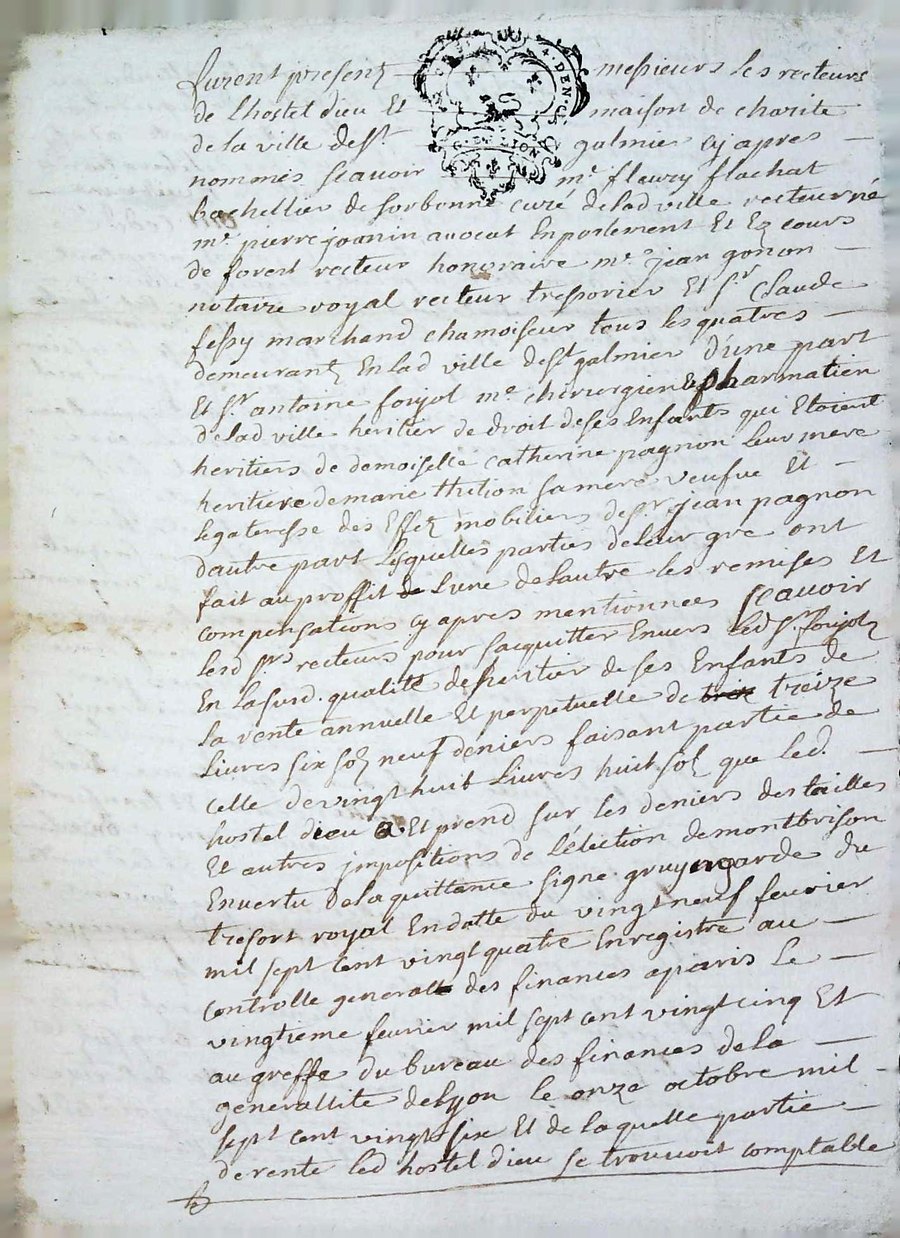 furent presentz messieurs les recteurs
de l hostel dieu Et maison de charité
de la ville de st. galmier cy apres
nommés scavoir mr. fleury flachat
bachellier de sorbonne curé de lad ville recteur né
me. pierre joanin avocat En parlement Et Ez cours
de forest recteur honoraire me. jean gonon
notaire royal recteur tresorier Et sr. Claude
fessy marchand chamoiseur tous les quatres
demeurantz En lad ville de st. galmier d'une part
Et sr. antoine foujol me. chirurgien Et pharmatien
de lad ville heritier de droit de ses Enfants qui Etoient
heritiers de demoiselle Catherine pagnon leur mere
heritiere de marie thilion sa mere veufve Et
legateresse des Effetz mobiliers de sr. jean pagnon
dautre part lesquelles parties de leur gré ont
fait au proffit de l une de l autre les remises Et
compensations cy apres mentionnees scavoir
lesd srs. recteurs pour sacquitter Envers led sr. foujolz
En la susd. qualité de heritier de ses Enfants de
la rente annuelle Et perpetuelle de treize
Livres six solz neuf deniers faisant partie de
celle de vingt huit Livres huit solz que led.
hostel dieu a Et prend sur les deniers des tailles
Et autres jmpositions de l'élection de montbrison
En vertu de la quittance signé gruyn garde du
tresort royal En datte du vingt neuf fevrier
mil sept cent vingt quatre Enregistré au
controlle general des finances a paris le
vingtieme fevrier mil sept cent vingt cinq Et
au greffe du bureau des finances de la
generallité de lyon le onze octobre mil
sept cent vingt six Et de laquelle partie
de rente led hostel dieu se trouvoit comptable